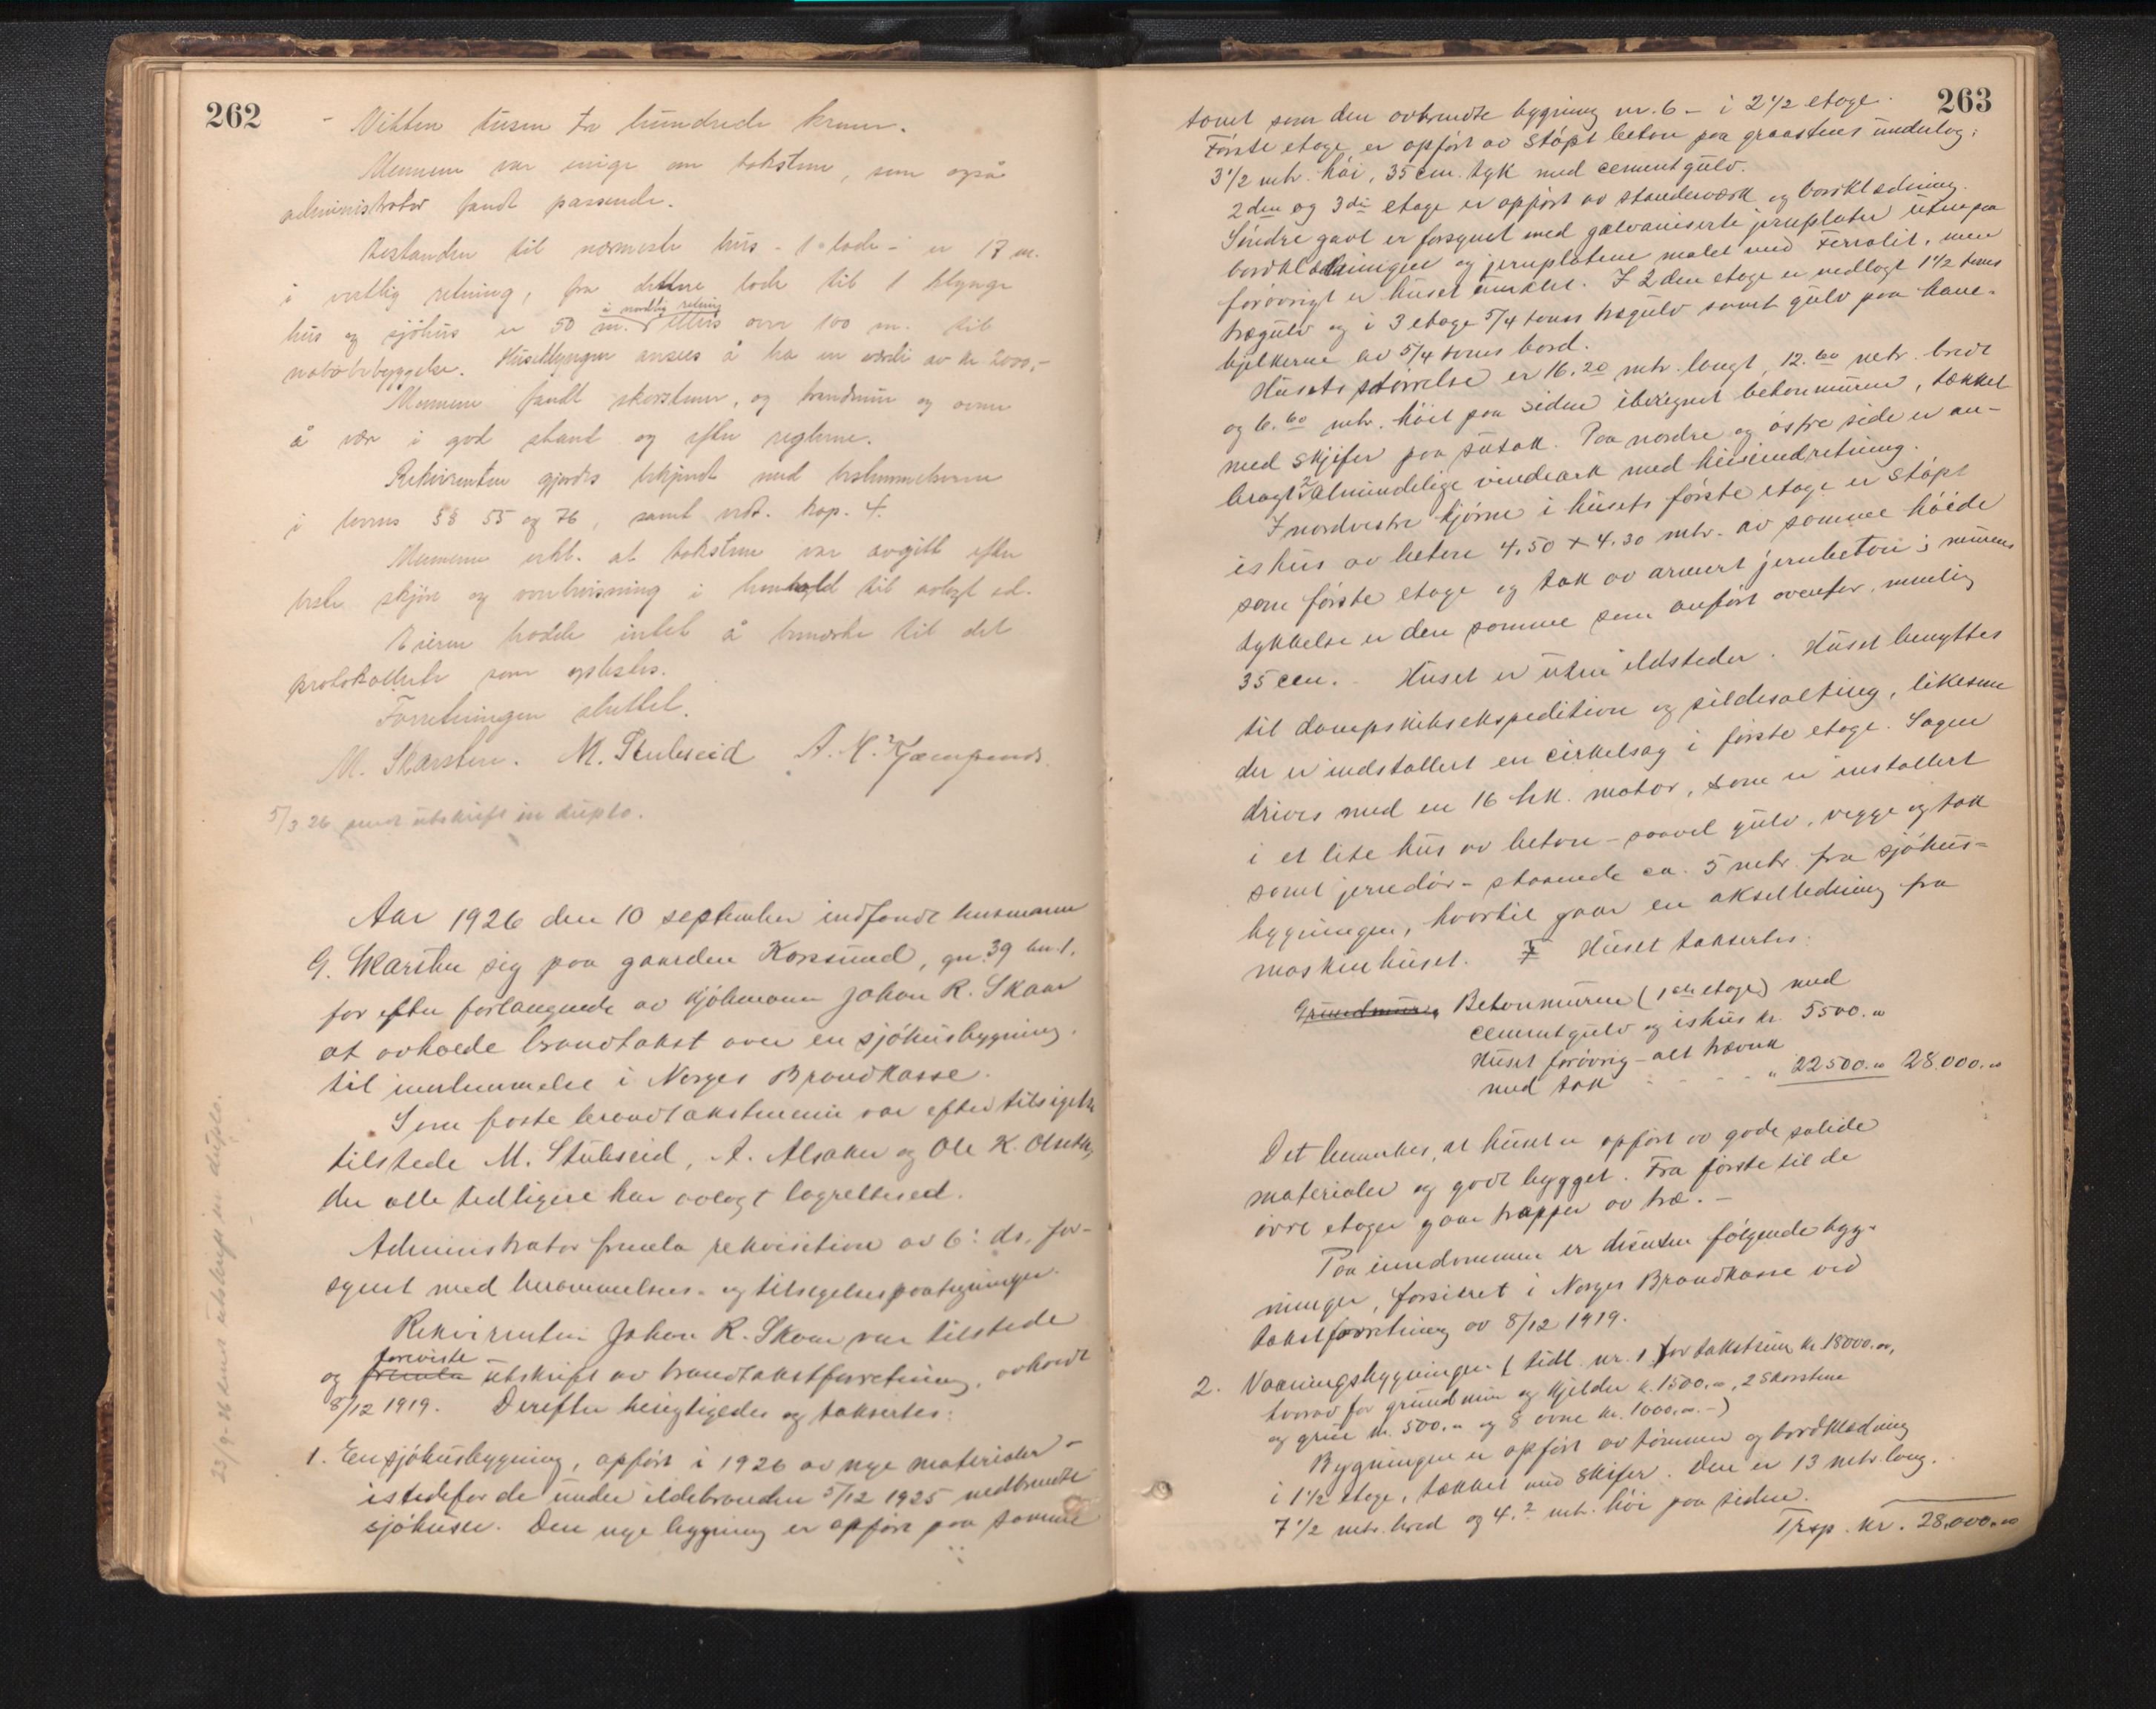 262
- Nitten tusen to hundrede kroner.
Mennene var enige om taksten, som også
administrator fandt passende.
Avstanden til nærmeste hus - 1 lade - er 17 m.
i vestlig retning, fra denne lade til 1 klynge
hus og sjöhus er 50 m. i nordlig retning ellers over 100 m. til
nabobebyggelse. Huseklyngen ansees å ha en værdi av kr 2000,-
Mennene fandt skorstener, og brandmur og ovner
å være i god stand og efter reglerne.
Rekvirenten gjordes bekjendt med bestemmelserne
i lovens §§ 55 og 76, samt vedt. kap. 4.
Mennene erkl. at taksten var avgitt efter
beste skjön og overbevisning i henhold til avlagt ed.
Eieren hadde intet å bemerke til det
protokollerte som oplæstes.
Forretningen sluttet.
M. Skarsten. M. Stubseid A. K.
5/3 26 sendt utskrift in duplo.
Aar 1926 den 10 september indfandt lensmann
G. Skarsten sig paa gaarden Korssund, gn. 39 bn. 1.
for efter forlangende av kjöbmann Johan R. Skaar
at avholde brandtakst over en sjöhusbygning
til innlemmelse i Norges Brandkasse.
Som faste brandtakstmenn var efter tilsigelse
tilstede M. Stubseid, A. Alsaker og Ole K.
der alle tidligere har avlagt lagrettesed.
Administrator fremla rekvisition av 6: ds. for-
synet med berammelses- og tilsigelsespaategninger.
Rekvirenten Johan R. Skaar var tilstede
og fremla foreviste utskrift av brandtakstforretning, avholdt
8/12 1919. Derefter besigtigedes og taksertes:
1. En sjöhusbygning, opfört i 1926 av nye materialer -
istedefor de under ildebranden 5/12 1925 nedbrendte
sjöhuse. Den nye bygning er opfört paa samme
23/9-26 sendt utskrift in duplo.
263
tomt som den avbrendte bygning nr. 6 - i 2 1/2 etage.
Förste etage er opfört av stöpt beton paa graastens underlag;
3 1/2 mtr. höi, 35 cm. tyk med cementgulv.
2den og 3die etage er opfört av standerværk og bordklædning.
Söndre gavl er forsynet med galvaniserte jernplater utenpaa
bordklædningen og jernplatene malet med Ferralit, men
forövrigt er huset umalet. I 2den etage er nedlagt 1 1/2 toms
trægulv og i 3 etage 5/4 toms trægulv samt gulv paa hane-
bjelkerne av 5/4 toms bord.
Husets störrelse er 16.20 mtr. langt, 12.60 mtr. bredt
og 6.60 mtr. höit paa siden iberegnet betonmuren, tækket
med skjifer paa sutak. Paa nordre og östre side er an-
bragt 2 almindelige vindeark med heiseindretning.
I nordvestre hjörne i husets förste etage er stöpt
ishus av beton 4,50 x 4.30 mtr. av samme höide
som förste etage og tak av armert jernbeton; murens
tykkelse er den samme som anfört ovenfor, nemlig
35 cm. Huset er uten ildsteder. Huset benyttes
til dampskibsekspedition og sildesalting, likesom
der er indstallert en cirkelsag i förste etage. Sagen
drives med en 16 hk. motor, som er installert
i et lite hus av beton - saavel gulv, vegge og tak
samt jerndör - staaende ca. 5 mtr. fra sjöhus-
bygningen, hvortil gaar en akselledning fra
maskinhuset. F Huset taksertes:
Grundmuren Betonmuren (1ste etage) med
cementgulv og ishus kr. 5500.00
Huset forövrig - alt træverk
med tak - - - - " 22500.00 28.000.00
Det bemerkes, at huset er opfört av gode solide
materialer og godt bygget. Fra förste til de
övre etager gaar trapper av træ. -
Paa eiendommen er desuten fölgende byg-
ninger, forsikret i Norges Brandkasse ved
takstforretning av 8/12 1919.
2. Vaaningsbygningen (tidl. nr. 1 for takstsum kr. 18000.00,
hvorav for grundmur og kjelder kr. 1500.00, 2 skorstene
og grue kr. 500.00 og 8 ovne kr. 1000.00.-)
Bygningen er opfört av tömmer og bordklædning
i 1 1/2 etage, tækket med skifer. Den er 13 mtr. lang.
7 1/2 mtr. bred og 4.2 mtr. höi paa siden.
Trsp. kr. 28,000.00